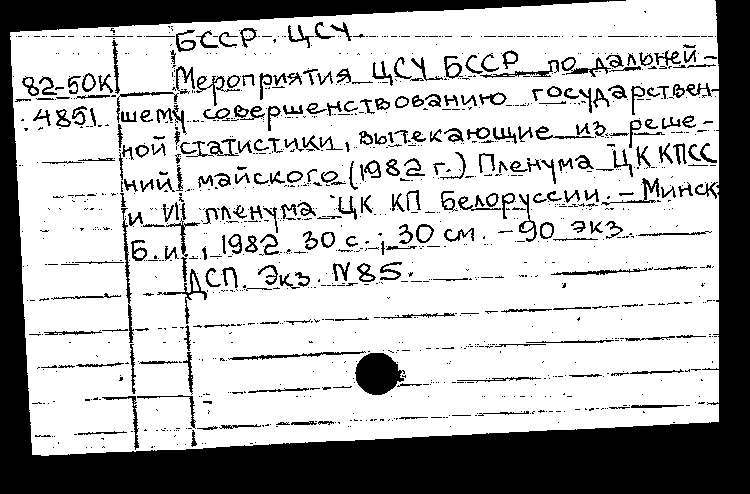 БССР. ЦСУ.
82-50К Мероприятия ЦСУ БССР по дальней-
4851 шему совершенствованию государствен-
ной статистики, вытекающие из реше-
ний майского (1982 г.) Пленума ЦК КПСС
и VI пленума ЦК КП Белоруссии. - Минск:
Б.и., 1982. 30 с.; 30 см. - 90 экз.
ДСП. Экз. N 85.